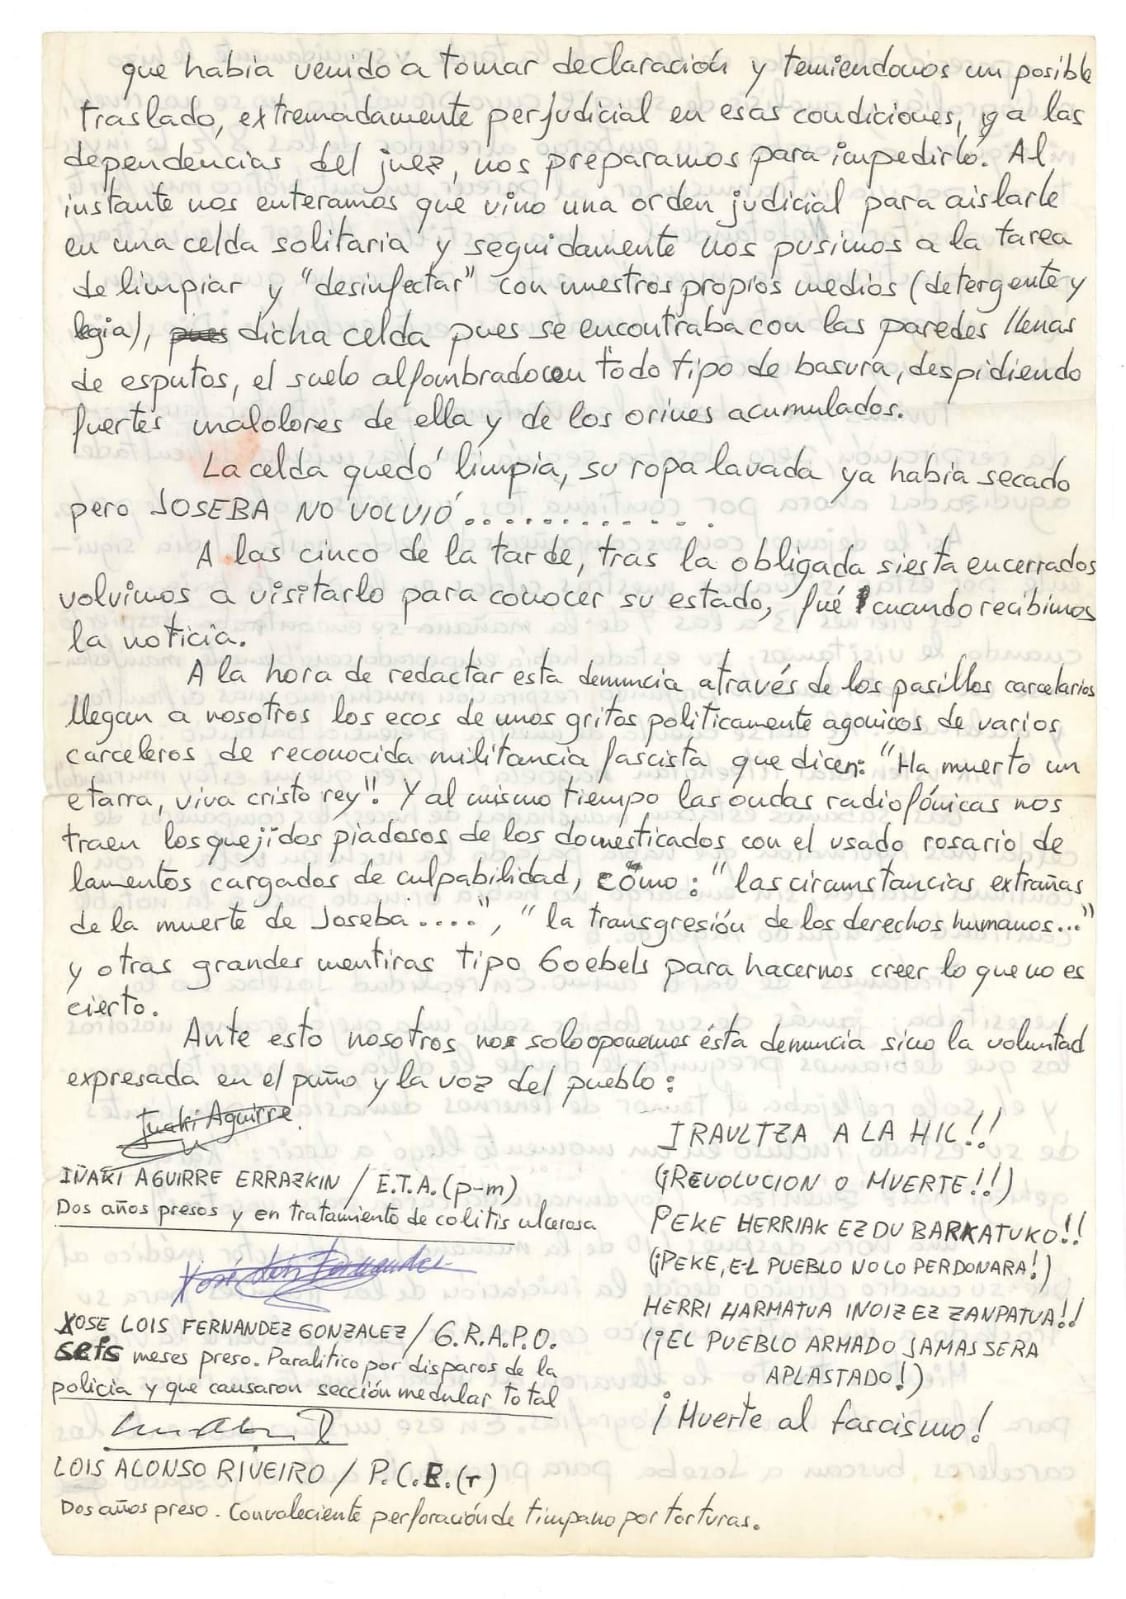 que había venido a tomar declaración y temiendonos un posible
traslado, extremadamente perjudicial en esas condiciones, y a las
dependencias del juez, nos preparamos para impedirlo. Al
instante nos enteramos que vino una orden judicial para aislarle
en una celda solitaria y seguidamente nos pusimos a la tarea
de limpiar y "desinfectar" con nuestros propios medios (detergente y
legia), pues dicha celda pues se encontraba con las paredes llenas
de esputos, el suelo alfombrado con todo tipo de basura, despidiendo
fuertes malolores de ella y de los orines acumulados.
La celda quedó limpia, su ropa lavada ya había secado
pero JOSEBA NO VOLVIÓ.............
A las cinco de la tarde, tras la obligada siesta encerrados
volvimos a visitarlo para conocer su estado, fué cuando recibimos
la noticia.
A la hora de redactar esta denuncia através de los pasillos carcelarios
llegan a nosotros los ecos de unos gritos politicamente agonicos de varios
carceleros de reconocida militancia fascista que dicen: "Ha muerto un
etarra, viva cristo rey"! Y al mismo tiempo las ondas radiofónicas nos
traen los quejidos piadosos de los domesticados con el usado rosario de
lamentos cargados de culpabilidad, como: "las circunstancias extrañas
de la muerte de Joseba....", "la transgresión de los derechos humanos..."
y otras grandes mentiras tipo Goebels para hacernos creer lo que no es
cierto.
Ante esto nosotros nos solo oponemos ésta denuncia sino la voluntad
expresada en el puño y la voz del pueblo:
Iñaki Aguirre
IÑAKI AGUIRRE ERRAZKIN / E.T.A. (p-m)
Dos años presos y en tratamiento de colitis ulcerosa
Xosé Lois Fernandez
XOSE LOIS FERNANDEZ GONZALEZ / G.R.A.P.O.
seis meses preso. Paralitico por disparos de la
policia y que causaron sección medular total
LOIS ALONSO RIVEIRO / P.C.E.(r)
Dos años preso. Convaleciente perforación de timpano por torturas.
IRAULTZA A LA HIL!!
(¡REVOLUCION O MUERTE!!)
PEKE HERRIAK EZ DU BARKATUKO!!
(¡PEKE, EL PUEBLO NO LO PERDONARA!)
HERRI HARMATUA INOIZ EZ ZANPATUA!!
(¡EL PUEBLO ARMADO JAMAS SERA
APLASTADO!)
¡Muerte al fascismo!